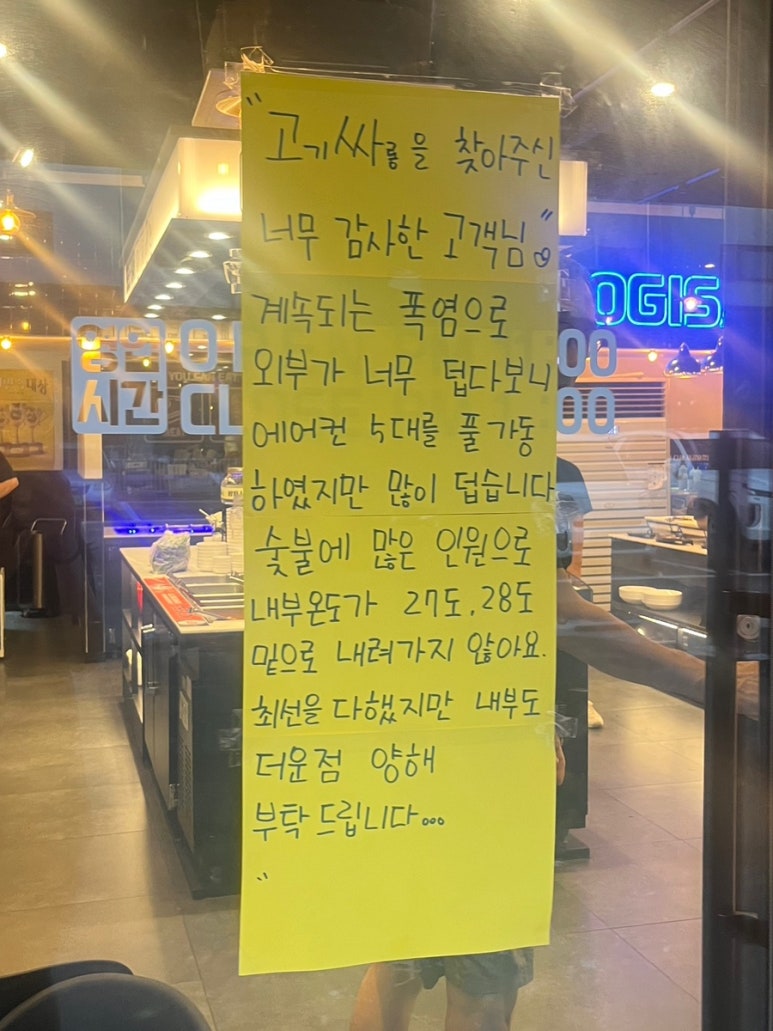 "고기싸롱을 찾아주신
너무 감사한 고객님"
계속되는 폭염으로
외부가 너무 덥다보니
에어컨 5대를 풀가동
하였지만 많이 덥습니다
숯불에 많은 인원으로
내부온도가 27도, 28도
밑으로 내려가지 않아요.
최선을 다했지만 내부도
더운점 양해
부탁드립니다...
"
영업
시간
OGIS